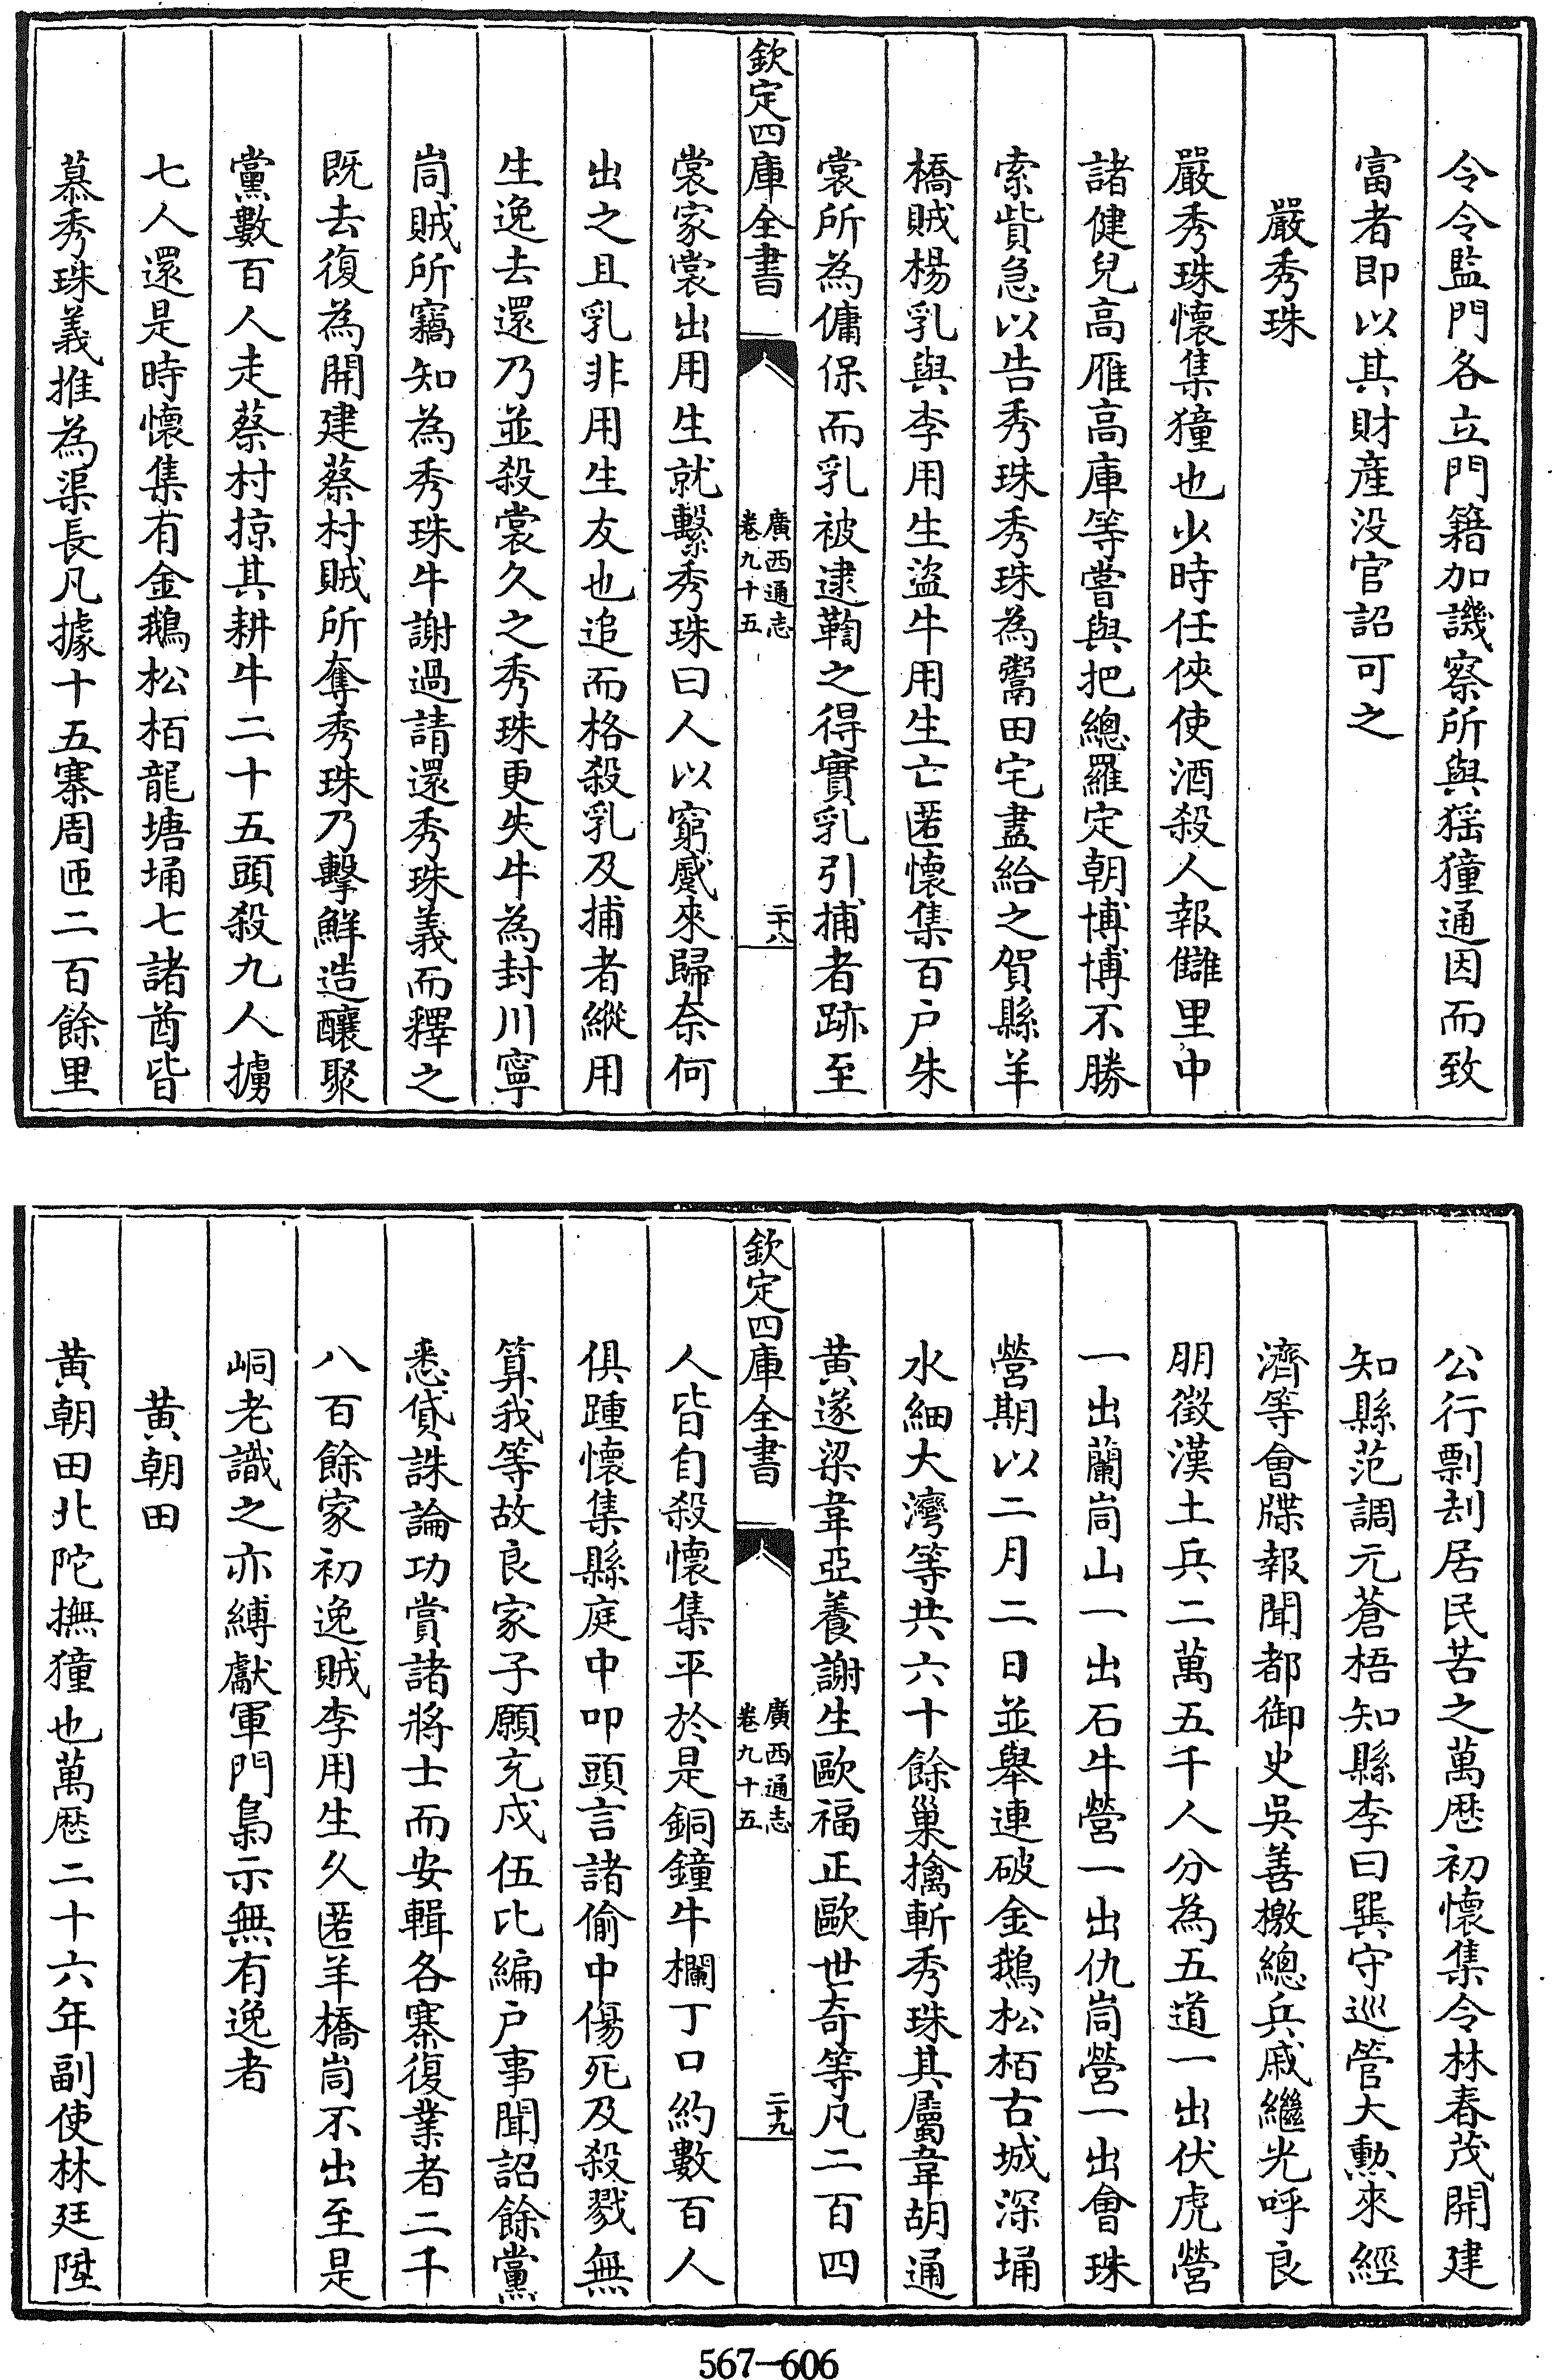 令令監門各立門籍加譏察所與猺獞通因而致
富者即以其財產没官詔可之
嚴秀珠
嚴秀珠懷集獞也少時任俠使酒殺人報讎里中
諸健兒高雁高庫等嘗與把總羅定朝博博不勝
索貲急以告秀珠秀珠為鬻田宅盡給之賀縣羊
橋賊楊乳與李用生盜牛用生亡匿懷集百户朱
裳所為傭保而乳被逮鞫之得實乳引捕者跡至
欽定四庫全書
廣西通志
卷九十五
二十八
裳家裳出用生就繫秀珠曰人以窮蹙來歸奈何
出之且乳非用生友也追而格殺乳及捕者縱用
生逸去還乃並殺裳久之秀珠更失牛為封川寧
峝賊所竊知為秀珠牛謝過請還秀珠義而釋之
既去復為開建蔡村賊所奪秀珠乃擊鮮造釀聚
黨數百人走蔡村掠其耕牛二十五頭殺九人擄
七人還是時懷集有金鵝松栢龍塘埇七諸酋皆
慕秀珠義推為渠長凡據十五寨周匝二百餘里
公行剽刦居民苦之萬厯初懷集令林春茂開建
知縣范調元蒼梧知縣李曰巽守巡管大勲來經
濟等會牒報聞都御史吳善檄總兵戚繼光呼良
朋徵漢土兵二萬五千人分為五道一出伏虎營
一出蘭峝山一出石牛營一出仇峝營一出會珠
營期以二月二日並舉連破金鵝松栢古城深埇
水細大灣等共六十餘巢擒斬秀珠其屬韋胡通
黄遂梁韋亞養謝生歐福正歐世奇等凡二百四
欽定四庫全書
廣西通志
卷九十五
二十九
人皆自殺懷集平於是銅鐘牛欄丁口約數百人
俱踵懷集縣庭中叩頭言諸偷中傷死及殺戮無
算我等故良家子願充戍伍比編户事聞詔餘黨
悉貸誅論功賞諸將士而安輯各寨復業者二千
八百餘家初逸賊李用生久匿羊橋峝不出至是
峒老識之亦縛獻軍門梟示無有逸者
黄朝田
黄朝田北陀撫獞也萬厯二十六年副使林廷陞
567—606